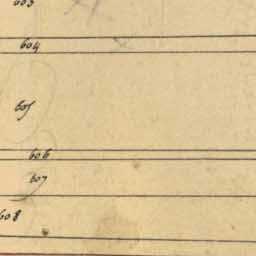 603
604
605
606
607
608